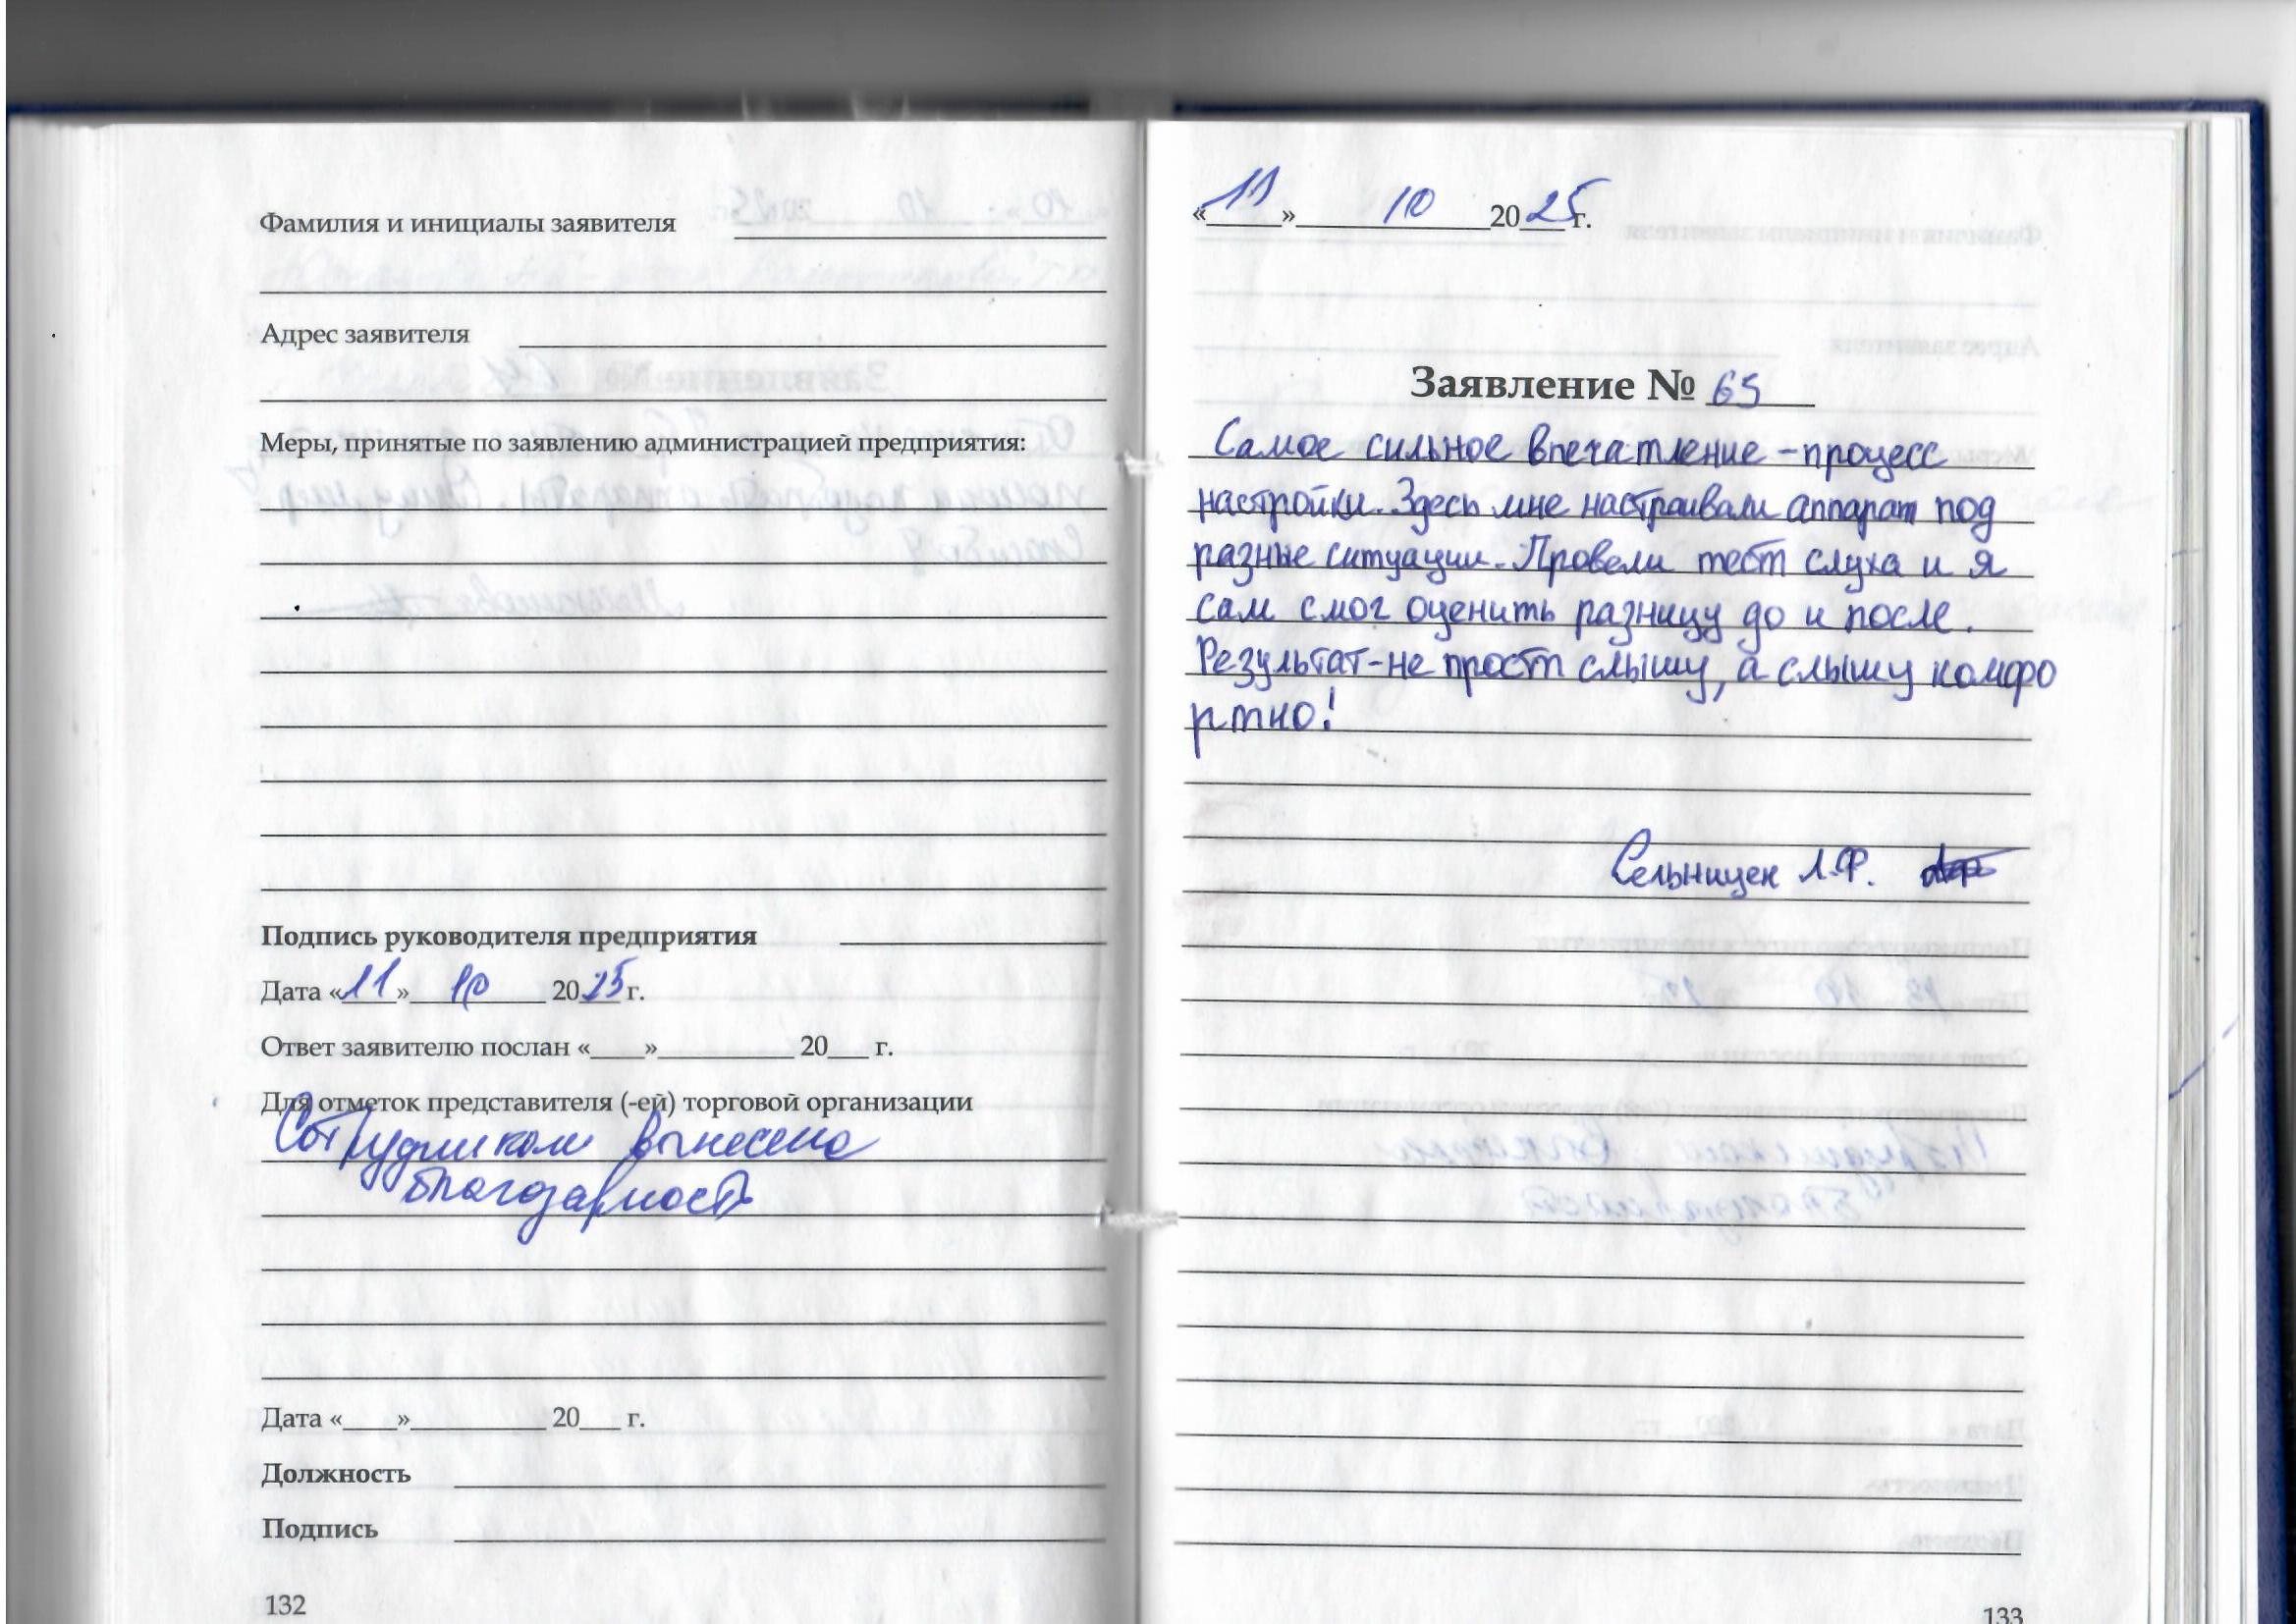 Фамилия и инициалы заявителя
Адрес заявителя
Меры, принятые по заявлению администрацией предприятия:
Подпись руководителя предприятия
Дата «11» 10 2025 г.
Ответ заявителю послан «____»__________ 20___ г.
Для отметок представителя (-ей) торговой организации
Сотрудникам вынесена
благодарность
Дата «____»__________ 20___ г.
Должность
Подпись
132
«11» 10 2025 г.
Заявление № 65
Самое сильное впечатление - процесс
настройки. Здесь мне настраивали аппарат под
разные ситуации. Провели тест слуха и я
сам смог оценить разницу до и после.
Результат - не прост слышу, а слышу комфо
ртно!
Сельницек Л.Ф.
133